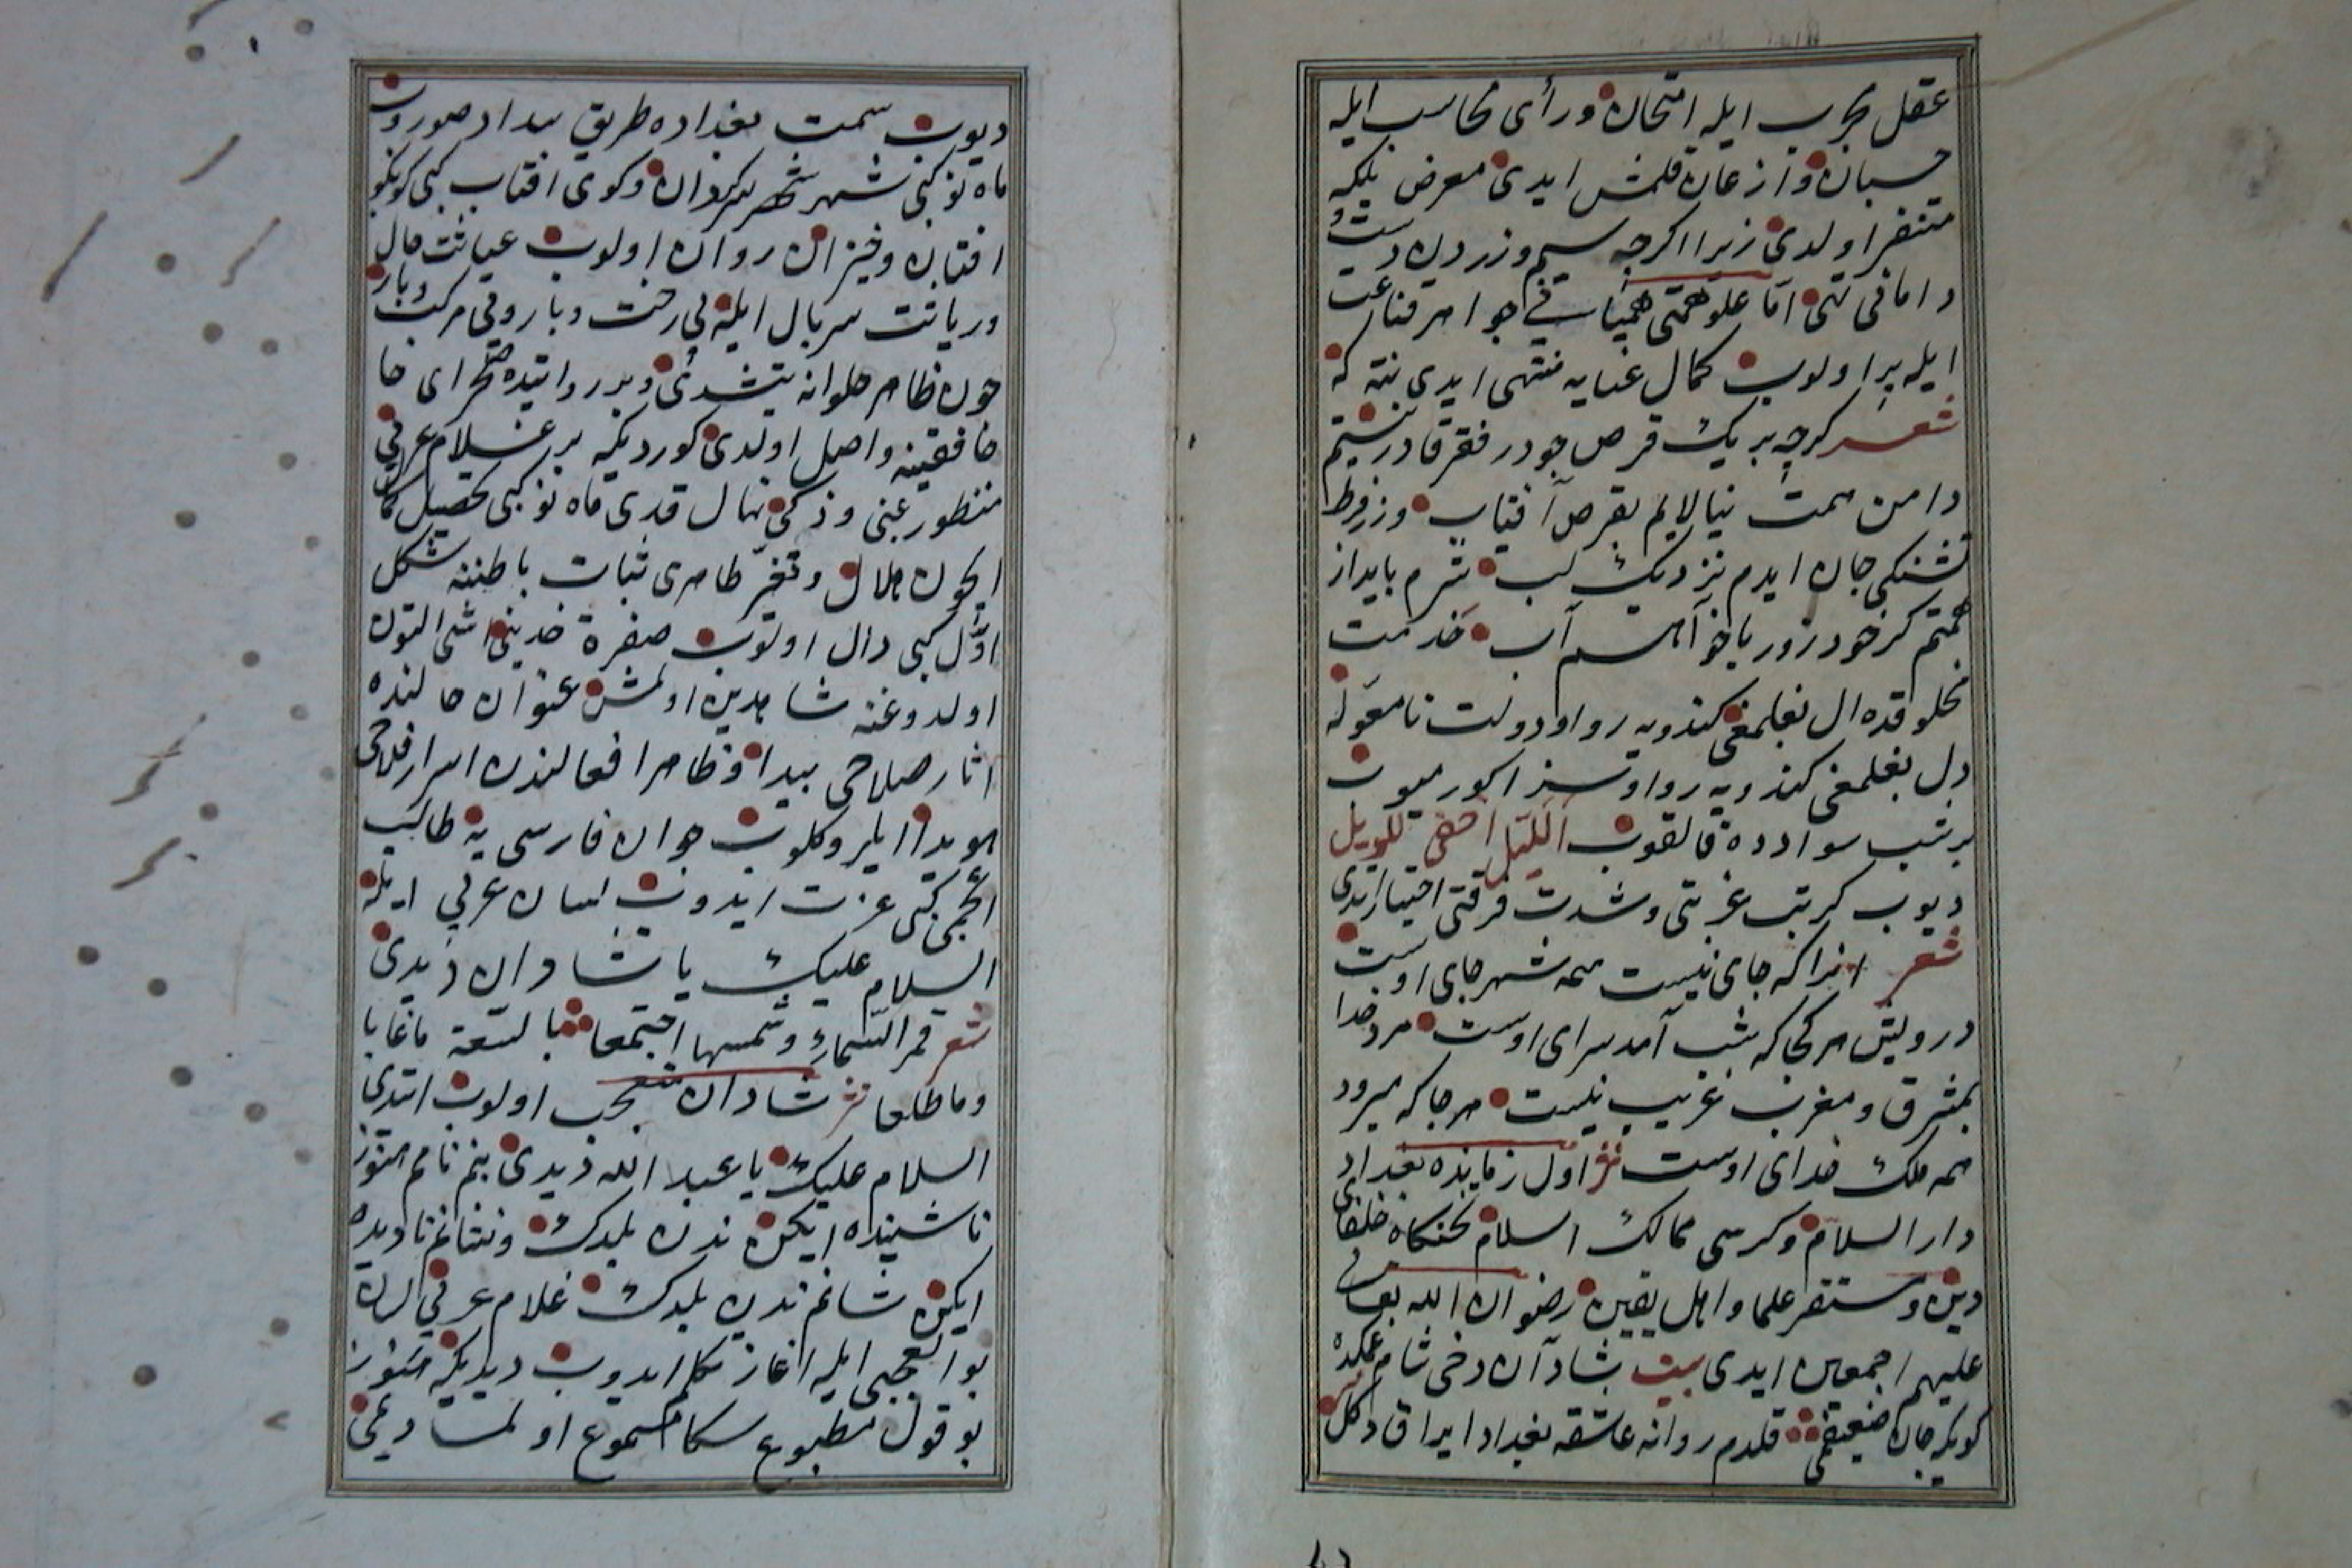 عقل مجرب ايله امتحان ورأى محاسب ايله
حسبان واذعان قلمش ايدى معرض بلكه
متنفر اولدى زيرا اكرچه سيم وزردن دست
دامانى تهى اما علو همتى هميانى جواهر قناعت
ايله پر اولوب كمال غنايه منتهى ايدى نته كه
شعر كرچه بر يك قرص جو در فقر قادر نيستم
دامن همت نيالايم بقرص آفتاب وز فرط
تشنكى جان ايدم نزديك لب شرم بايد از
همتم كز خود ز دريا خواهم آب خدمت
مخلوقده ال بغلمغى كندويه روا ودولت نامعوله
دل بغلمغى كندويه روا وسزا كورميوب
برشب سوادده قالقوب الليل اخفى للويل
ديوب كربت غربتى وشدت فرقتى اختيار ايتدى
شعر انرا كه جاى نيست همه شهر جاى اوست
درويش هر كجا كه شب آمد سراى اوست مرد خدا
بمشرق ومغرب غريب نيست هر جا كه ميرود
همه ملك خداى اوست نثر اول زمانده بغداد
دار السلام وكرسى ممالك اسلام تختكاه خلفاى
دين ومستقر علما واهل يقين رضوان الله تعالى
عليهم اجمعين ايدى بيت شادآن دخى شام غمكده
كويكر جان ضعيفمى قلدم روانه عاشقه بغداد ايراق دكل
ديوب سمت بغداده طريق بيداد صوروب
ماه نو كبى شهر شهر كردان وكوى افتاب كبى كو بكو
افتان وخيزان روان اولوب عياثت حال
ورياثت سربال ايله بى رخت وبار وبى مركب وبار
چون ظاهر حلوانه يتشدى وبر روايتده صحراى خا
خانقينه واصل اولدى كورديكه بر غلام عربى
منظور غبى وذكى نهال قدى ماه نو كبى تحصيل كمال
ايچون هلال وتغير ظاهرى ثبات باطننه شكل
اول كبى دال اولوب صفرة خدينى اشى التون
اولدوغنه شاهدين اولمش عنوان حالنده
اثار صلاحى پيدا وظاهر افعالندن اسرار فلاحى
هويدا ايلرو كلوب جوان فارسى يه طالب
العجمى كبى عزت ايدوب لسان عربى ايله
السلام عليك يا شادان ديدى
شعر قمر السماء وشمسها اجتمعا بالسعة ماغابا
وما طلعا نثر شادان متعجب اولوب ايتدى
السلام عليك يا عبد الله ديدى بنم نامم هنوز
ناشنيده ايكن ندن بلدك ونشانم ناديده
ايكن شانم ندن بلدك غلام عربى لسان
بو العجبى ايله اغاز تكلم ايدوب ديديكه هنوز
بو قول مطبوع سكا مسموع اولمادى مى